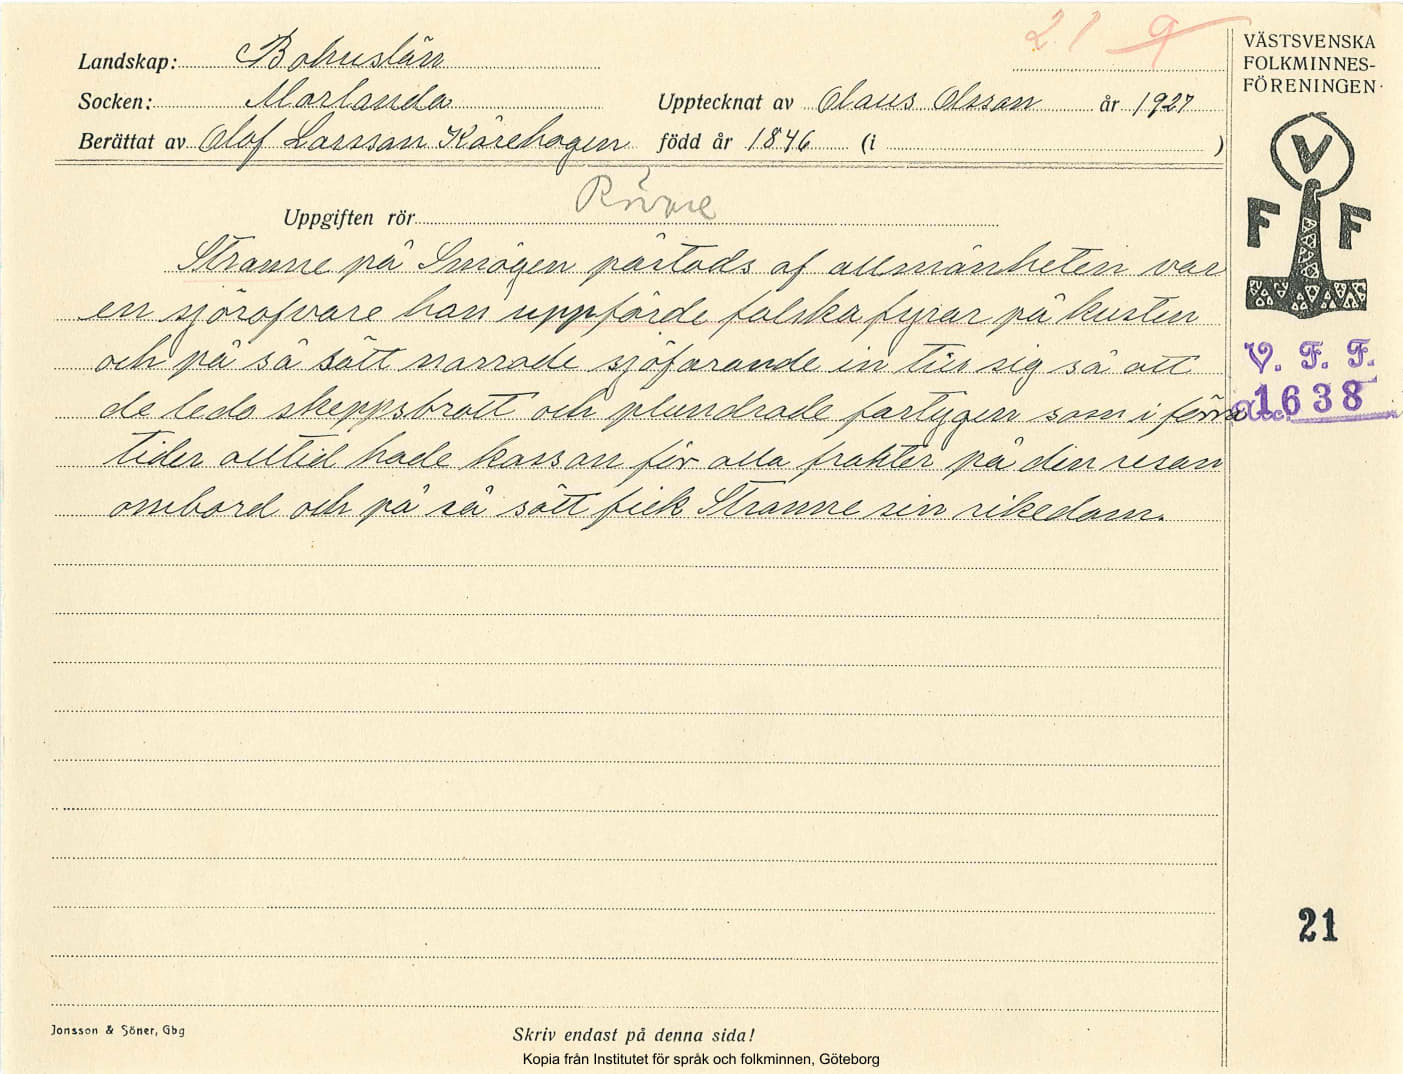 21 9
Landskap: Bohuslän
Socken: Morlanda
Upptecknat av Olaus Olsson år 1927
Berättat av Olof Larsson Kårehogen född år 1846 (i )
VÄSTSVENSKA
FOLKMINNES-
FÖRENINGEN
V
F F
Uppgiften rör Rövare
Stranne på Smögen påstods af allmänheten var
en sjöröfvare han uppförde falska fyrar på kusten
och på så sätt narrade sjöfarande in till sig så att
de ledo skeppsbrott och plundrade fartygen som i förra
tider alltid hade kassan för alla frakter på den resan
ombord och på så sätt fick Stranne sin rikedom.
V. F. F.
Acc. 1638
21
Jonsson & Söner, Gbg
Skriv endast på denna sida!
Kopia från Institutet för språk och folkminnen, Göteborg